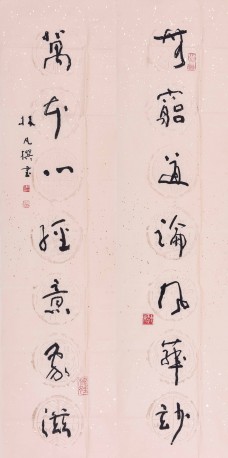 無窮道論風華妙
萬本心經意象滋
林凡撰書